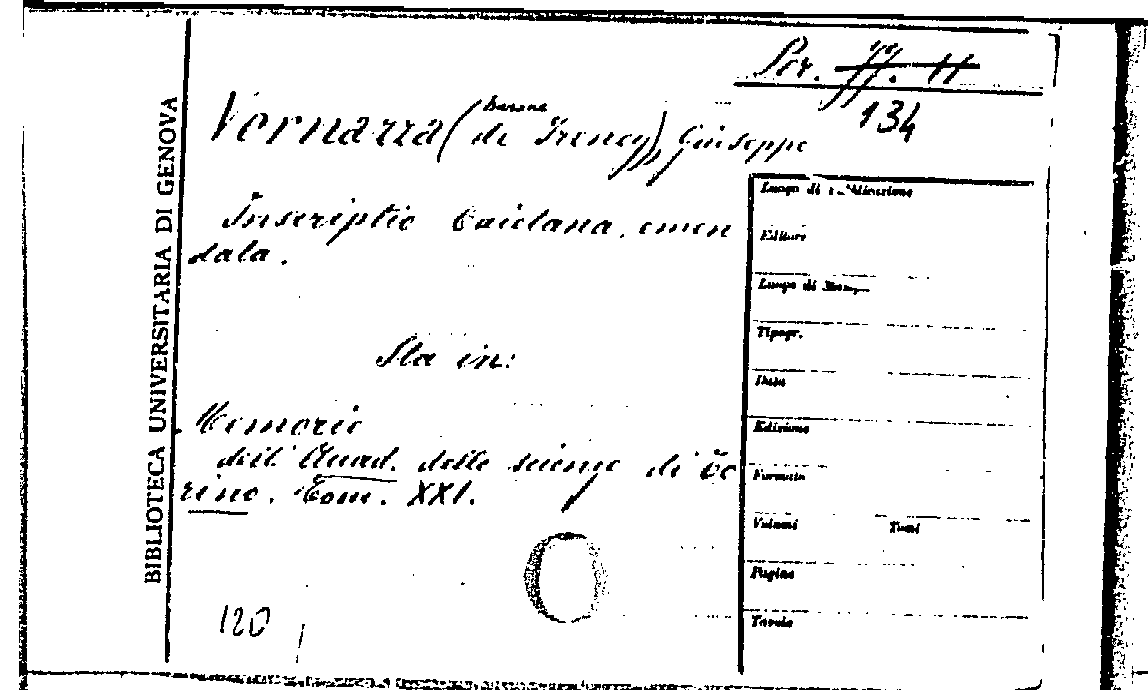 BIBLIOTECA UNIVERSITARIA DI GENOVA
Per. 11
134
Vernazza (barone di Freney), Giuseppe
Inscriptio emen
data.
Sta in:
Memorie
dell' Acad. delle scienze di To
rino. Tom. XXI.
120
Luogo di pubblicazione
Editore
Luogo di Stampa
Tipogr.
Data
Edizione
Formato
Volumi Tomi
Pagine
Tavole